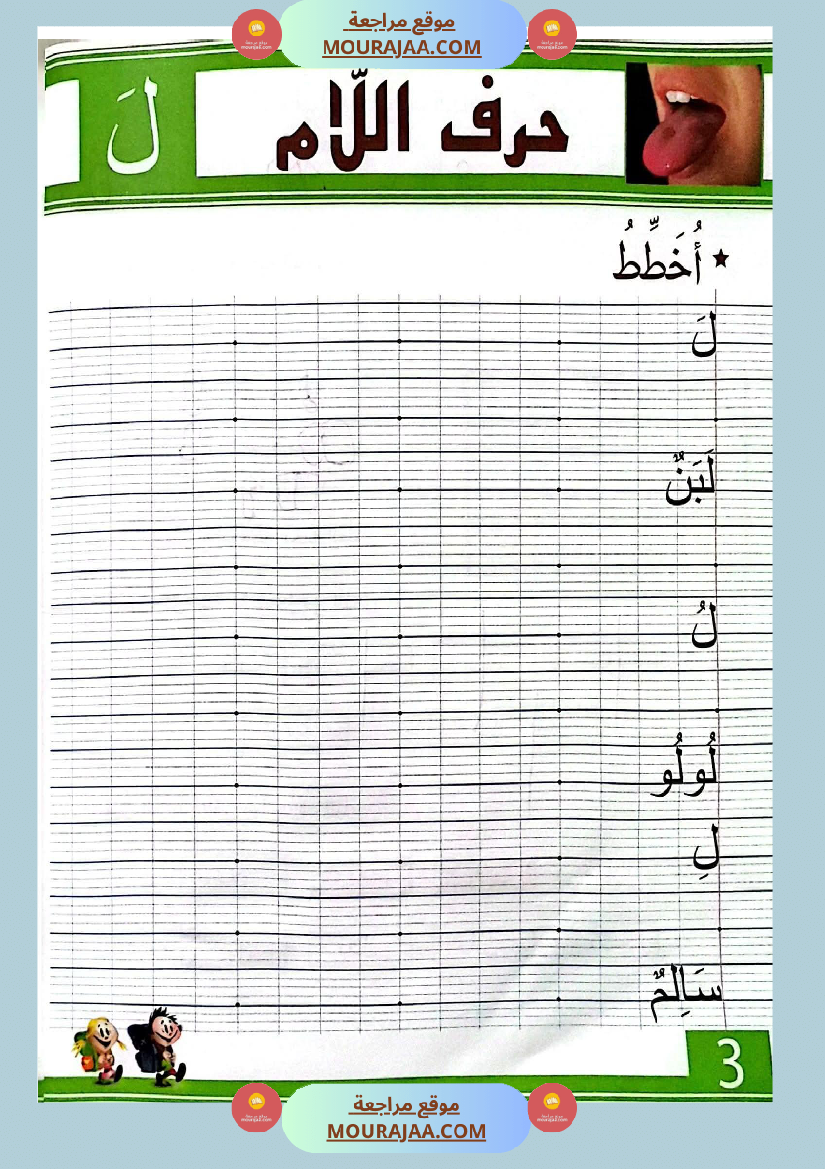 موقع مراجعة
MOURAJAA.COM
حرف اللّام
لَ
★ أُخَطِّطُ
لَ
لَبَنٌ
لُ
لُولُو
لِ
سَالِمٌ
3
موقع مراجعة
MOURAJAA.COM